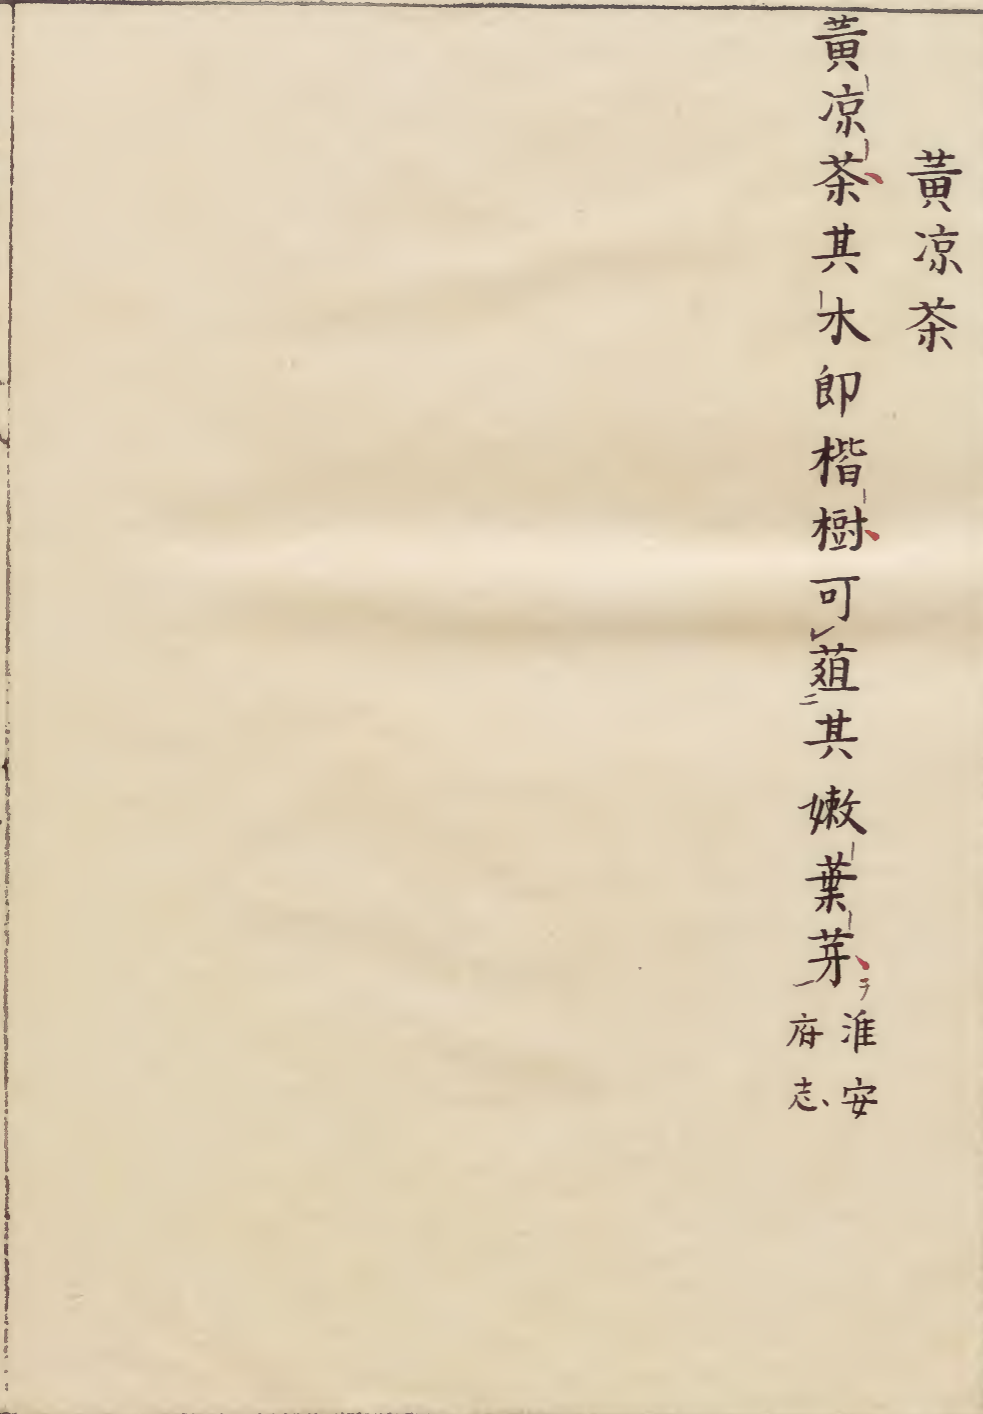 黃凉茶
黃凉茶其木即楷樹可レ葅二其嫩葉芽ヲ一
淮安
府志